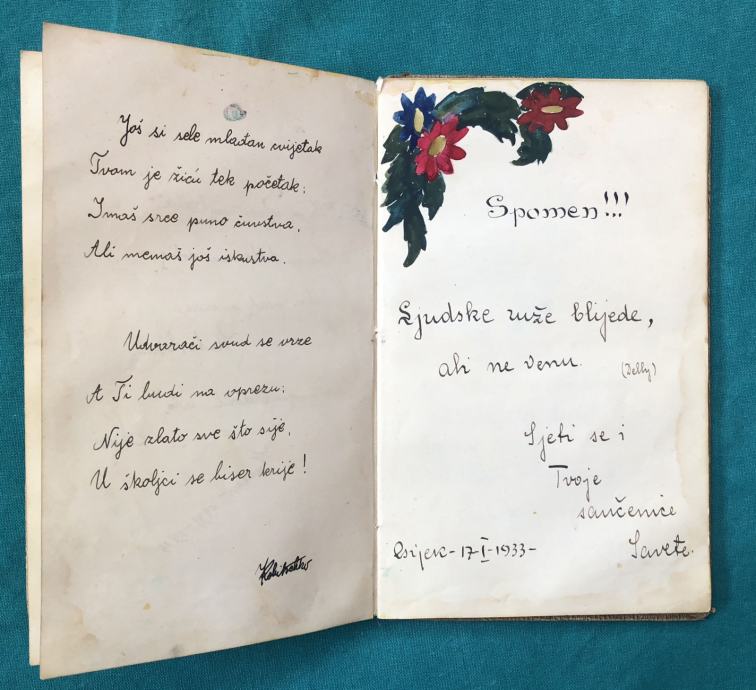 Još si sele mlađan cvijetak
Tvom je žiću tek početak;
Imaš srce puno čuvstva,
Ali nemaš još iskustva.
Udvarači svud se vrze
A Ti budi na oprezu;
Nije zlato sve što sije,
U školjci se biser krije!
Spomen!!!
Ljudske ruže blijede,
ali ne venu. (Delly)
Sjeti se i
Tvoje
saučenice
Osijek-17-I-1933- Savete.